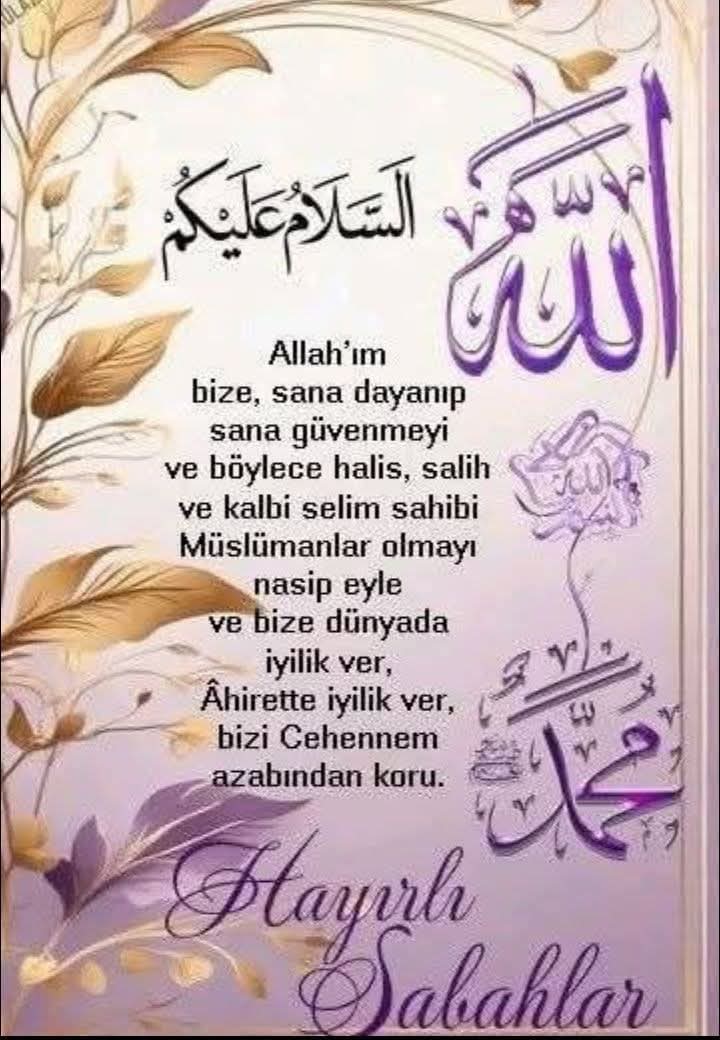 اَلسَّلَامُ عَلَيْكُمْ
الله
Allah’ım
bize, sana dayanıp
sana güvenmeyi
ve böylece halis, salih
ve kalbi selim sahibi
Müslümanlar olmayı
nasip eyle
ve bize dünyada
iyilik ver,
Âhirette iyilik ver,
bizi Cehennem
azabından koru.
الله
محمد
Hayırlı
Sabahlar